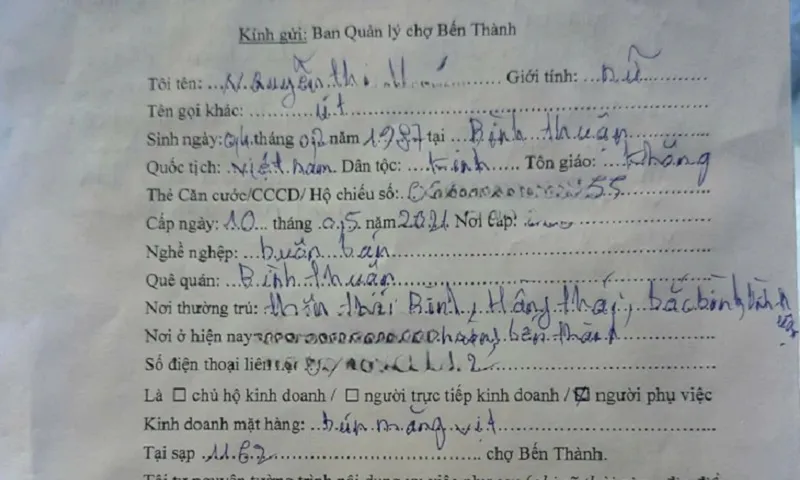 Kính gửi: Ban Quản lý chợ Bến Thành
Tôi tên: Nguyễn thị Giới tính: nữ
Tên gọi khác: út
Sinh ngày: 04 tháng 02 năm 1987 tại Bình thuận
Quốc tịch: việt nam Dân tộc: kinh Tôn giáo: không
Thẻ Căn cước/CCCD/ Hộ chiếu số: 55
Cấp ngày: 10 tháng 05 năm 2021 Nơi Cấp:
Nghề nghệp: buôn bán
Quê quán: Bình thuận
Nơi thường trú: thôn thái Bình, Hồng thái, bắc bình, bình thuận
Nơi ở hiện nay bến thành
Số điện thoại liên
Là ☐ chủ hộ kinh doanh / ☐ người trực tiếp kinh doanh / ☑ người phụ việc
Kinh doanh mặt hàng: bún măng vịt
Tại sạp 1162 chợ Bến Thành.